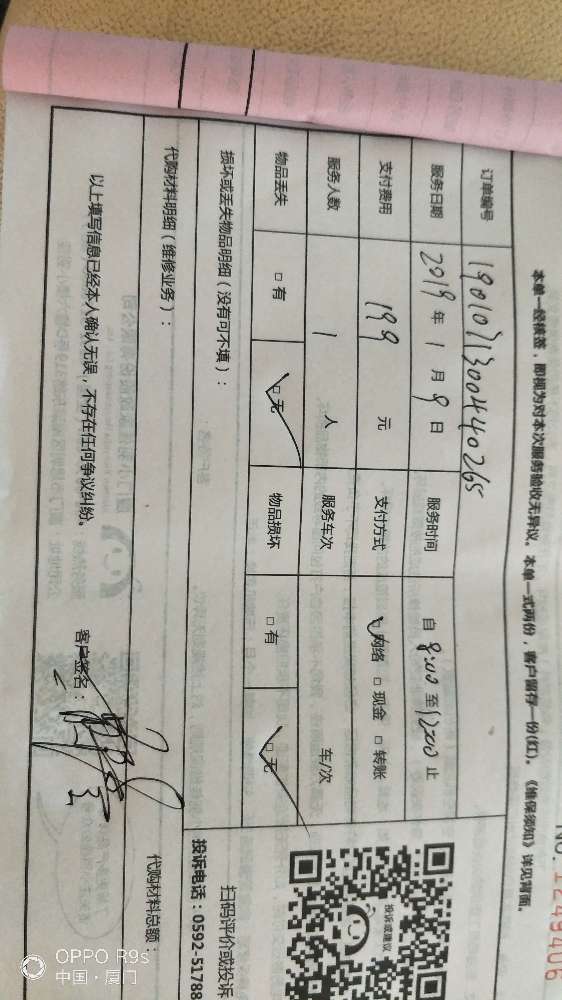 NO. 1249406
本单一经核签，即视为对本次服务验收无异议。本单一式两份，客户留存一份(红)。《维保须知》详见背面。
订单编号 1901071300440265
服务日期 2019 年 1 月 9 日 服务时间 自 8:00 至 12:00 止
支付费用 199 元 支付方式 ☑网络 □现金 □转账
服务人数 1 人 服务车次 车/次
物品丢失 □有 ☑无 物品损坏 □有 ☑无
损坏或丢失物品明细（没有可不填）：
投诉或建议
扫码评价或投诉
投诉电话：0592-51788
代购材料明细（维修业务）：
代购材料总额：
以上填写信息已经本人确认无误，不存在任何争议纠纷。
客户签名：
OPPO R9s
中国·厦门